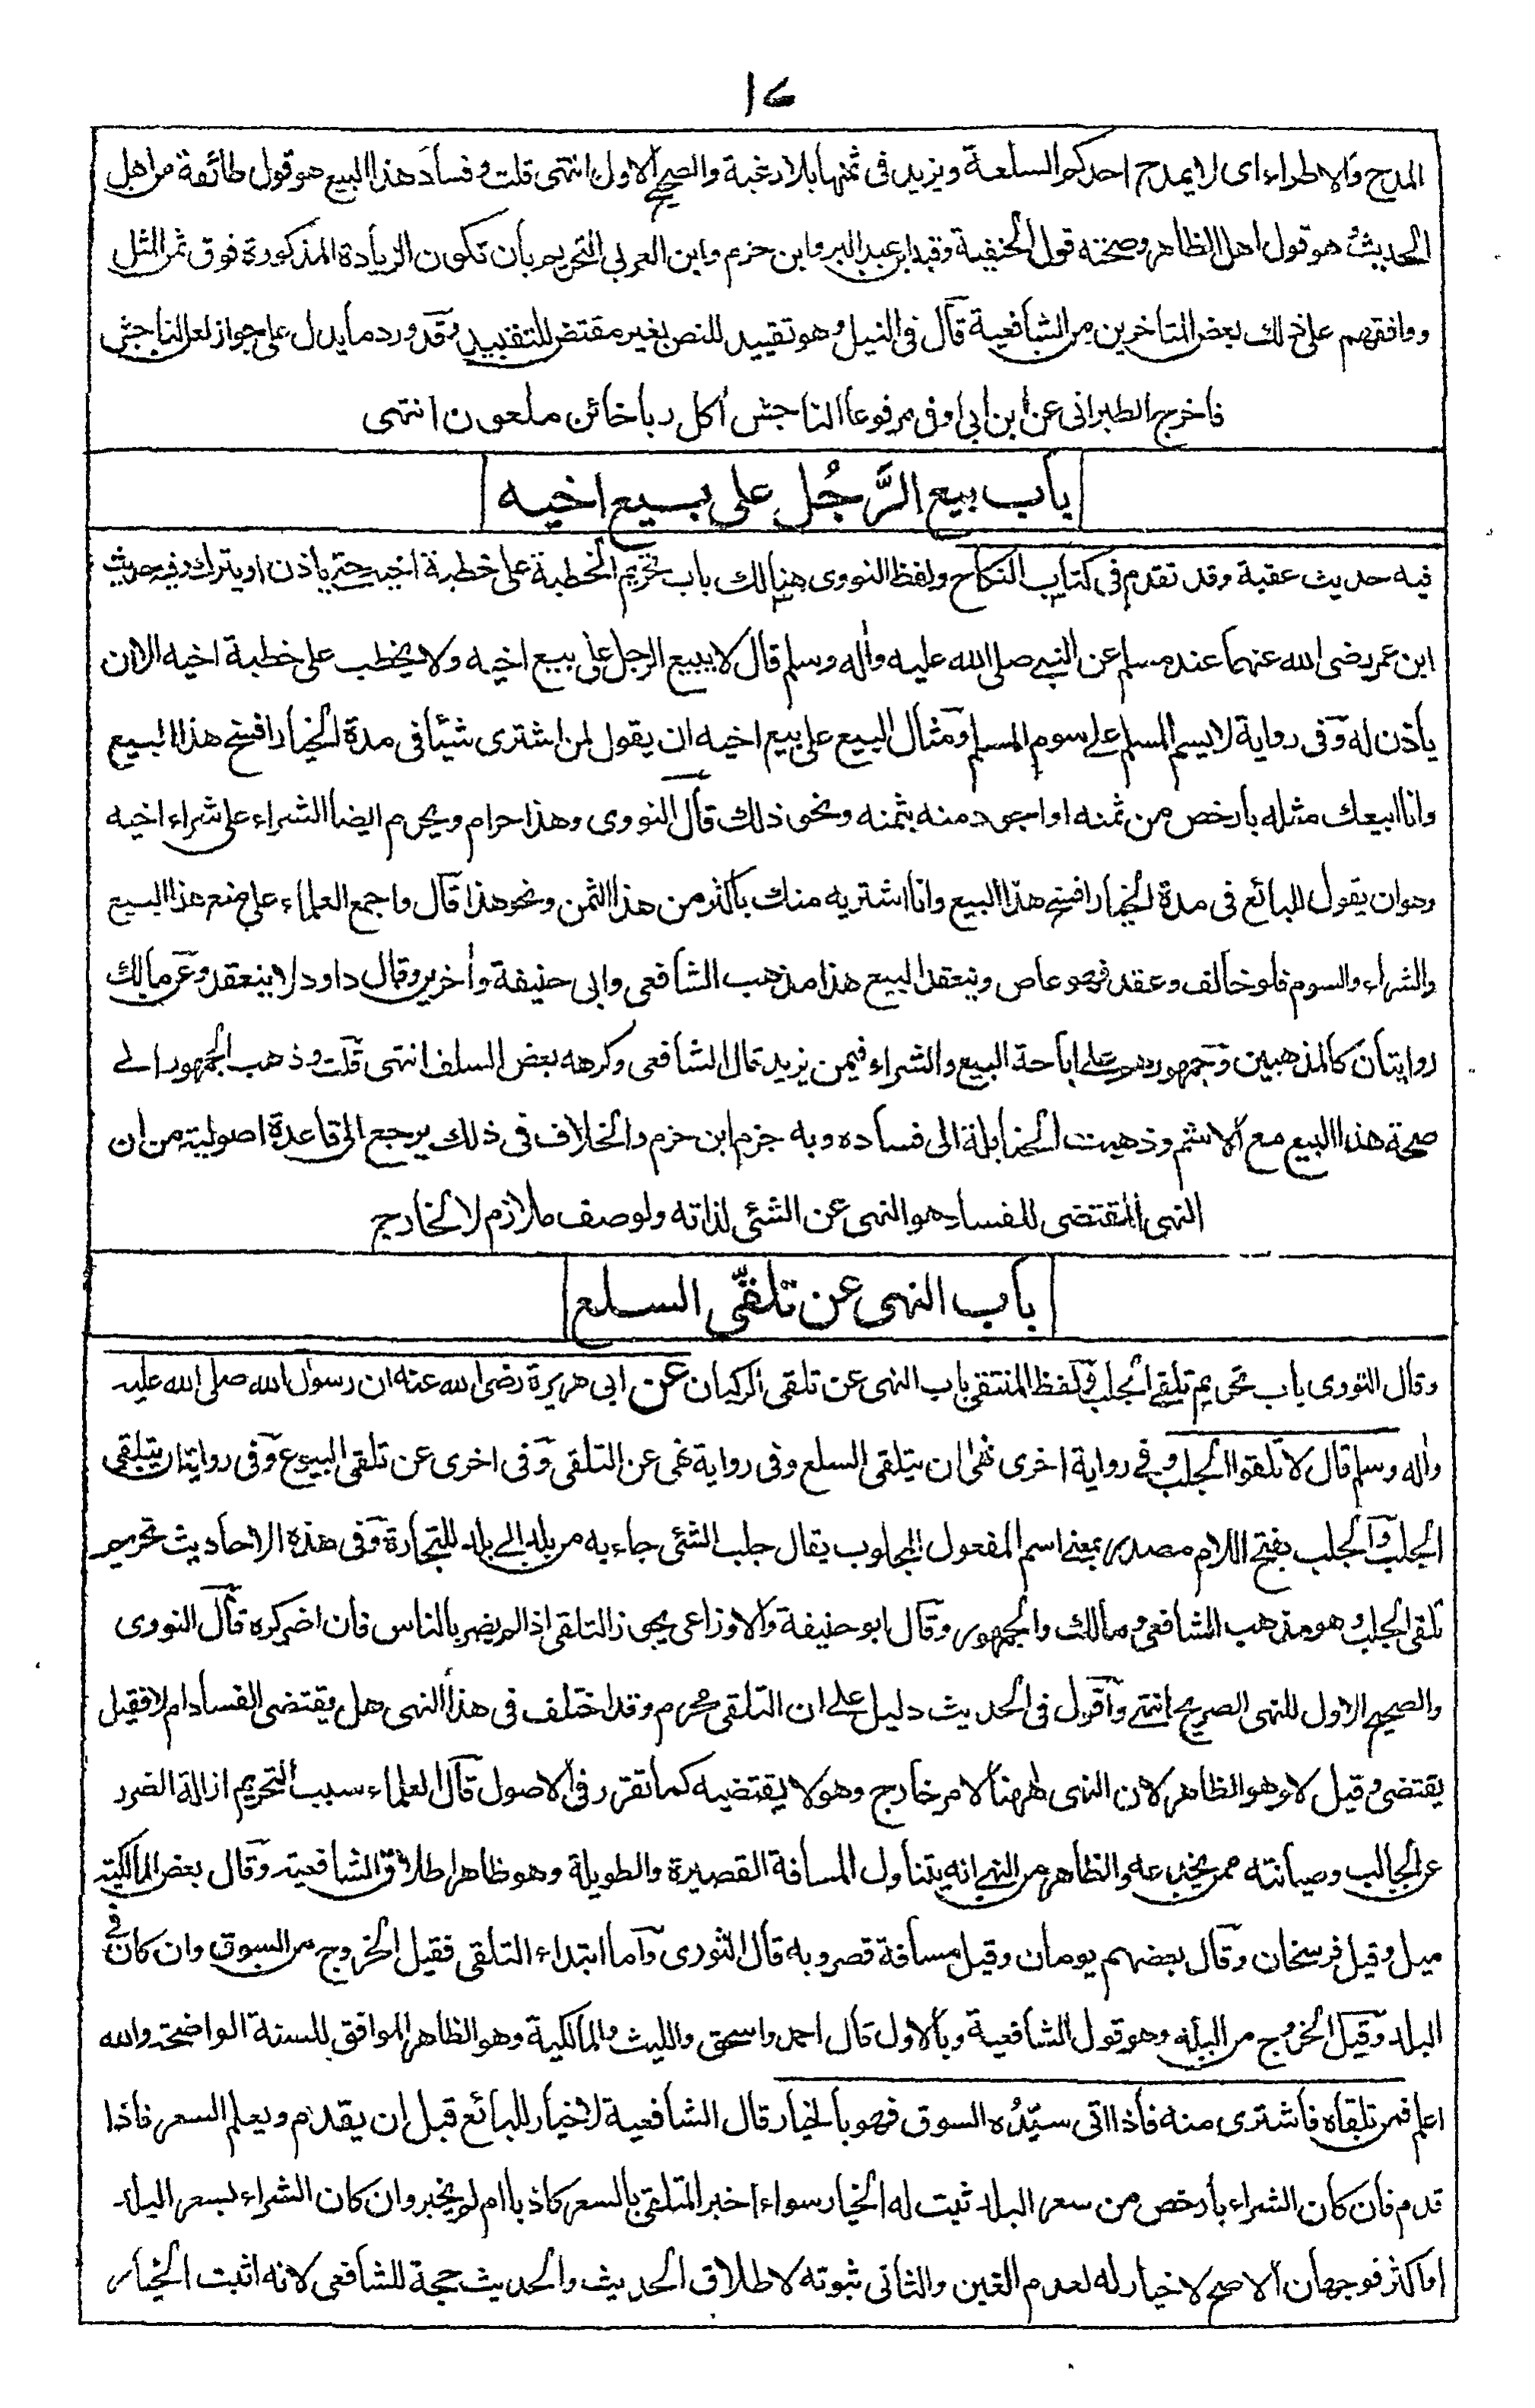 ١٤
المدح والاطراء اى لا يمدح احدكم السلعة ويزيد فى ثمنها بلا رغبة والصحيح الاول انتهى قلت وفساد هذا البيع هو قول طائفة من اهل
الحديث وهو قول اهل الظاهر وصحته قول الحنفية وقيد ابن عبد البر وابن حزم وابن العربي التحريم بان تكون الزيادة المذكورة فوق ثمن المثل
ووافقهم على ذلك بعض المتاخرين من الشافعية قال فى النيل وهو تقييد للنص بغير مقتض للتقييد وقد ورد ما يدل على جواز لعن الناجش
فاخرج الطبرانى عن ابن ابي اوفى مرفوعا الناجش اكل ربا خائن ملعون انتهى
باب بيع الرَّجُل على بيع اخيه
فيه حديث عقبة وقد تقدم فى كتاب النكاح ولفظ النووى هنالك باب تحريم الخطبة على خطبة اخيه حتى ياذن او يترك وفيه حديث
ابن عمر رضى الله عنهما عند مسلم عن النبي صلى الله عليه واله وسلم قال لا يبيع الرجل على بيع اخيه ولا يخطب على خطبة اخيه الا ان
يأذن له وفى رواية لا يسم المسلم على سوم المسلم ومثال البيع على بيع اخيه ان يقول لمن اشترى شيئا فى مدة الخيار افسخ هذا البيع
وانا ابيعك مثله بارخص من ثمنه او اجود منه بثمنه ونحو ذلك قال النووى وهذا حرام ويحرم ايضا الشراء على شراء اخيه
وهو ان يقول للبائع فى مدة الخيار افسخ هذا البيع وانا اشتريه منك باكثر من هذا الثمن ونحو هذا قال واجمع العلماء على منع هذا البيع
والشراء والسوم فلو خالف وعقد فهو عاص وينعقد البيع هذا مذهب الشافعى وابى حنيفة واخرين وقال داود لا ينعقد وعن مالك
روايتان كالمذهبين وجمهورهم على اباحة البيع والشراء فيمن يزيد قال الشافعى وكرهه بعض السلف انتهى قلت وذهب الجمهور الى
صحة هذا البيع مع الاثم وذهبت الحنابلة الى فساده وبه جزم ابن حزم والخلاف فى ذلك يرجع الى قاعدة اصولية من ان
النهى المقتضى للفساد هو النهى عن الشئى لذاته ولوصف ملازم لا لخارج
باب النهى عن تلقّى السلع
وقال النووى باب تحريم تلقى الجلب ولفظ المنتقى باب النهى عن تلقى الركبان عن ابى هريرة رضى الله عنه ان رسول الله صلى الله عليه
واله وسلم قال لا تلقوا الجلب وفى رواية اخرى نهى ان يتلقى السلع وفى رواية نهى عن التلقى وفى اخرى عن تلقى البيوع وفى رواية ان يتلقى
الجلب والجلب بفتح اللام مصدر بمعنى اسم المفعول المجلوب يقال جلب الشئى جاء به من بلد الى بلد للتجارة وفى هذه الاحاديث تحريم
تلقى الجلب وهو مذهب الشافعى ومالك والجمهور وقال ابو حنيفة والاوزاعى يجوز التلقى اذا لم يضر بالناس فان اضر كره قال النووى
والصحيح الاول للنهى الصريح انتهى واقول فى الحديث دليل على ان التلقى محرم وقد اختلف فى هذا النهى هل يقتضى الفساد ام لا فقيل
يقتضى وقيل لا وهو الظاهر لان النهى ههنا لامر خارج وهو لا يقتضيه كما تقرر فى الاصول قال العلماء سبب التحريم ازالة الضرر
عن الجالب وصيانته ممن يخدعه والظاهر من النهى انه يتناول المسافة القصيرة والطويلة وهو ظاهر اطلاق الشافعية وقال بعض المالكية
ميل وقيل فرسخان وقال بعضهم يومان وقيل مسافة قصر وبه قال الثورى واما ابتداء التلقى فقيل الخروج من السوق وان كان فى
البلد وقيل الخروج من البلد وهو قول الشافعية وبالاول قال احمد واسحق والليث والمالكية وهو الظاهر الموافق للسنة الواضحة والله
اعلم فمن تلقاه فاشترى منه فاذا اتى سيّدُه السوق فهو بالخيار قال الشافعية لا خيار للبائع قبل ان يقدم ويعلم السعر فاذا
قدم فان كان الشراء بارخص من سعر البلد ثبت له الخيار سواء اخبر المتلقى بالسعر كاذبا ام لم يخبر وان كان الشراء بسعر البلد
او اكثر فوجهان الاصح لا خيار له لعدم الغبن والثانى ثبوته لاطلاق الحديث والحديث حجة للشافعى لانه اثبت الخيار